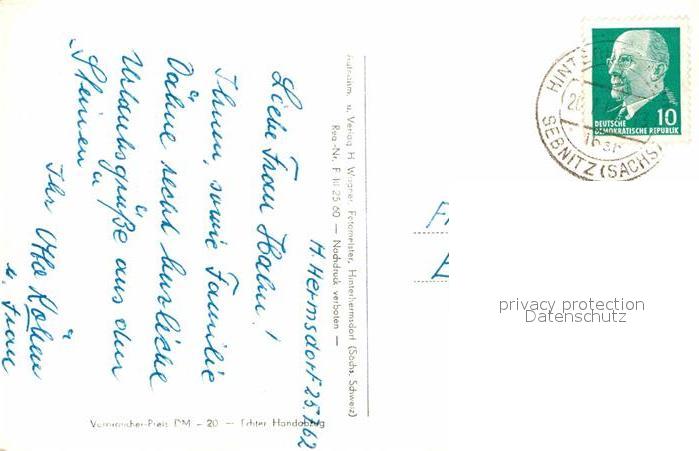 H. Hermsdorf 25.7.62
Liebe Frau Hahn!
Ihnen, sowie Familie
Dähne recht herzliche
Urlaubsgrüße aus den
Steinen
Ihr Otto
u. Frau
Aufnahm. u. Verlag H. Wagner, Fotomeister, Hinterhermsdorf (Sächs. Schweiz)
Reg.-Nr. F III 25 60 — Nachdruck verboten —
Verbraucher-Preis DM -.20 — Echter Handabzug
DEUTSCHE
DEMOKRATISCHE REPUBLIK
10
SEBNITZ (SACHS)
privacy protection
Datenschutz